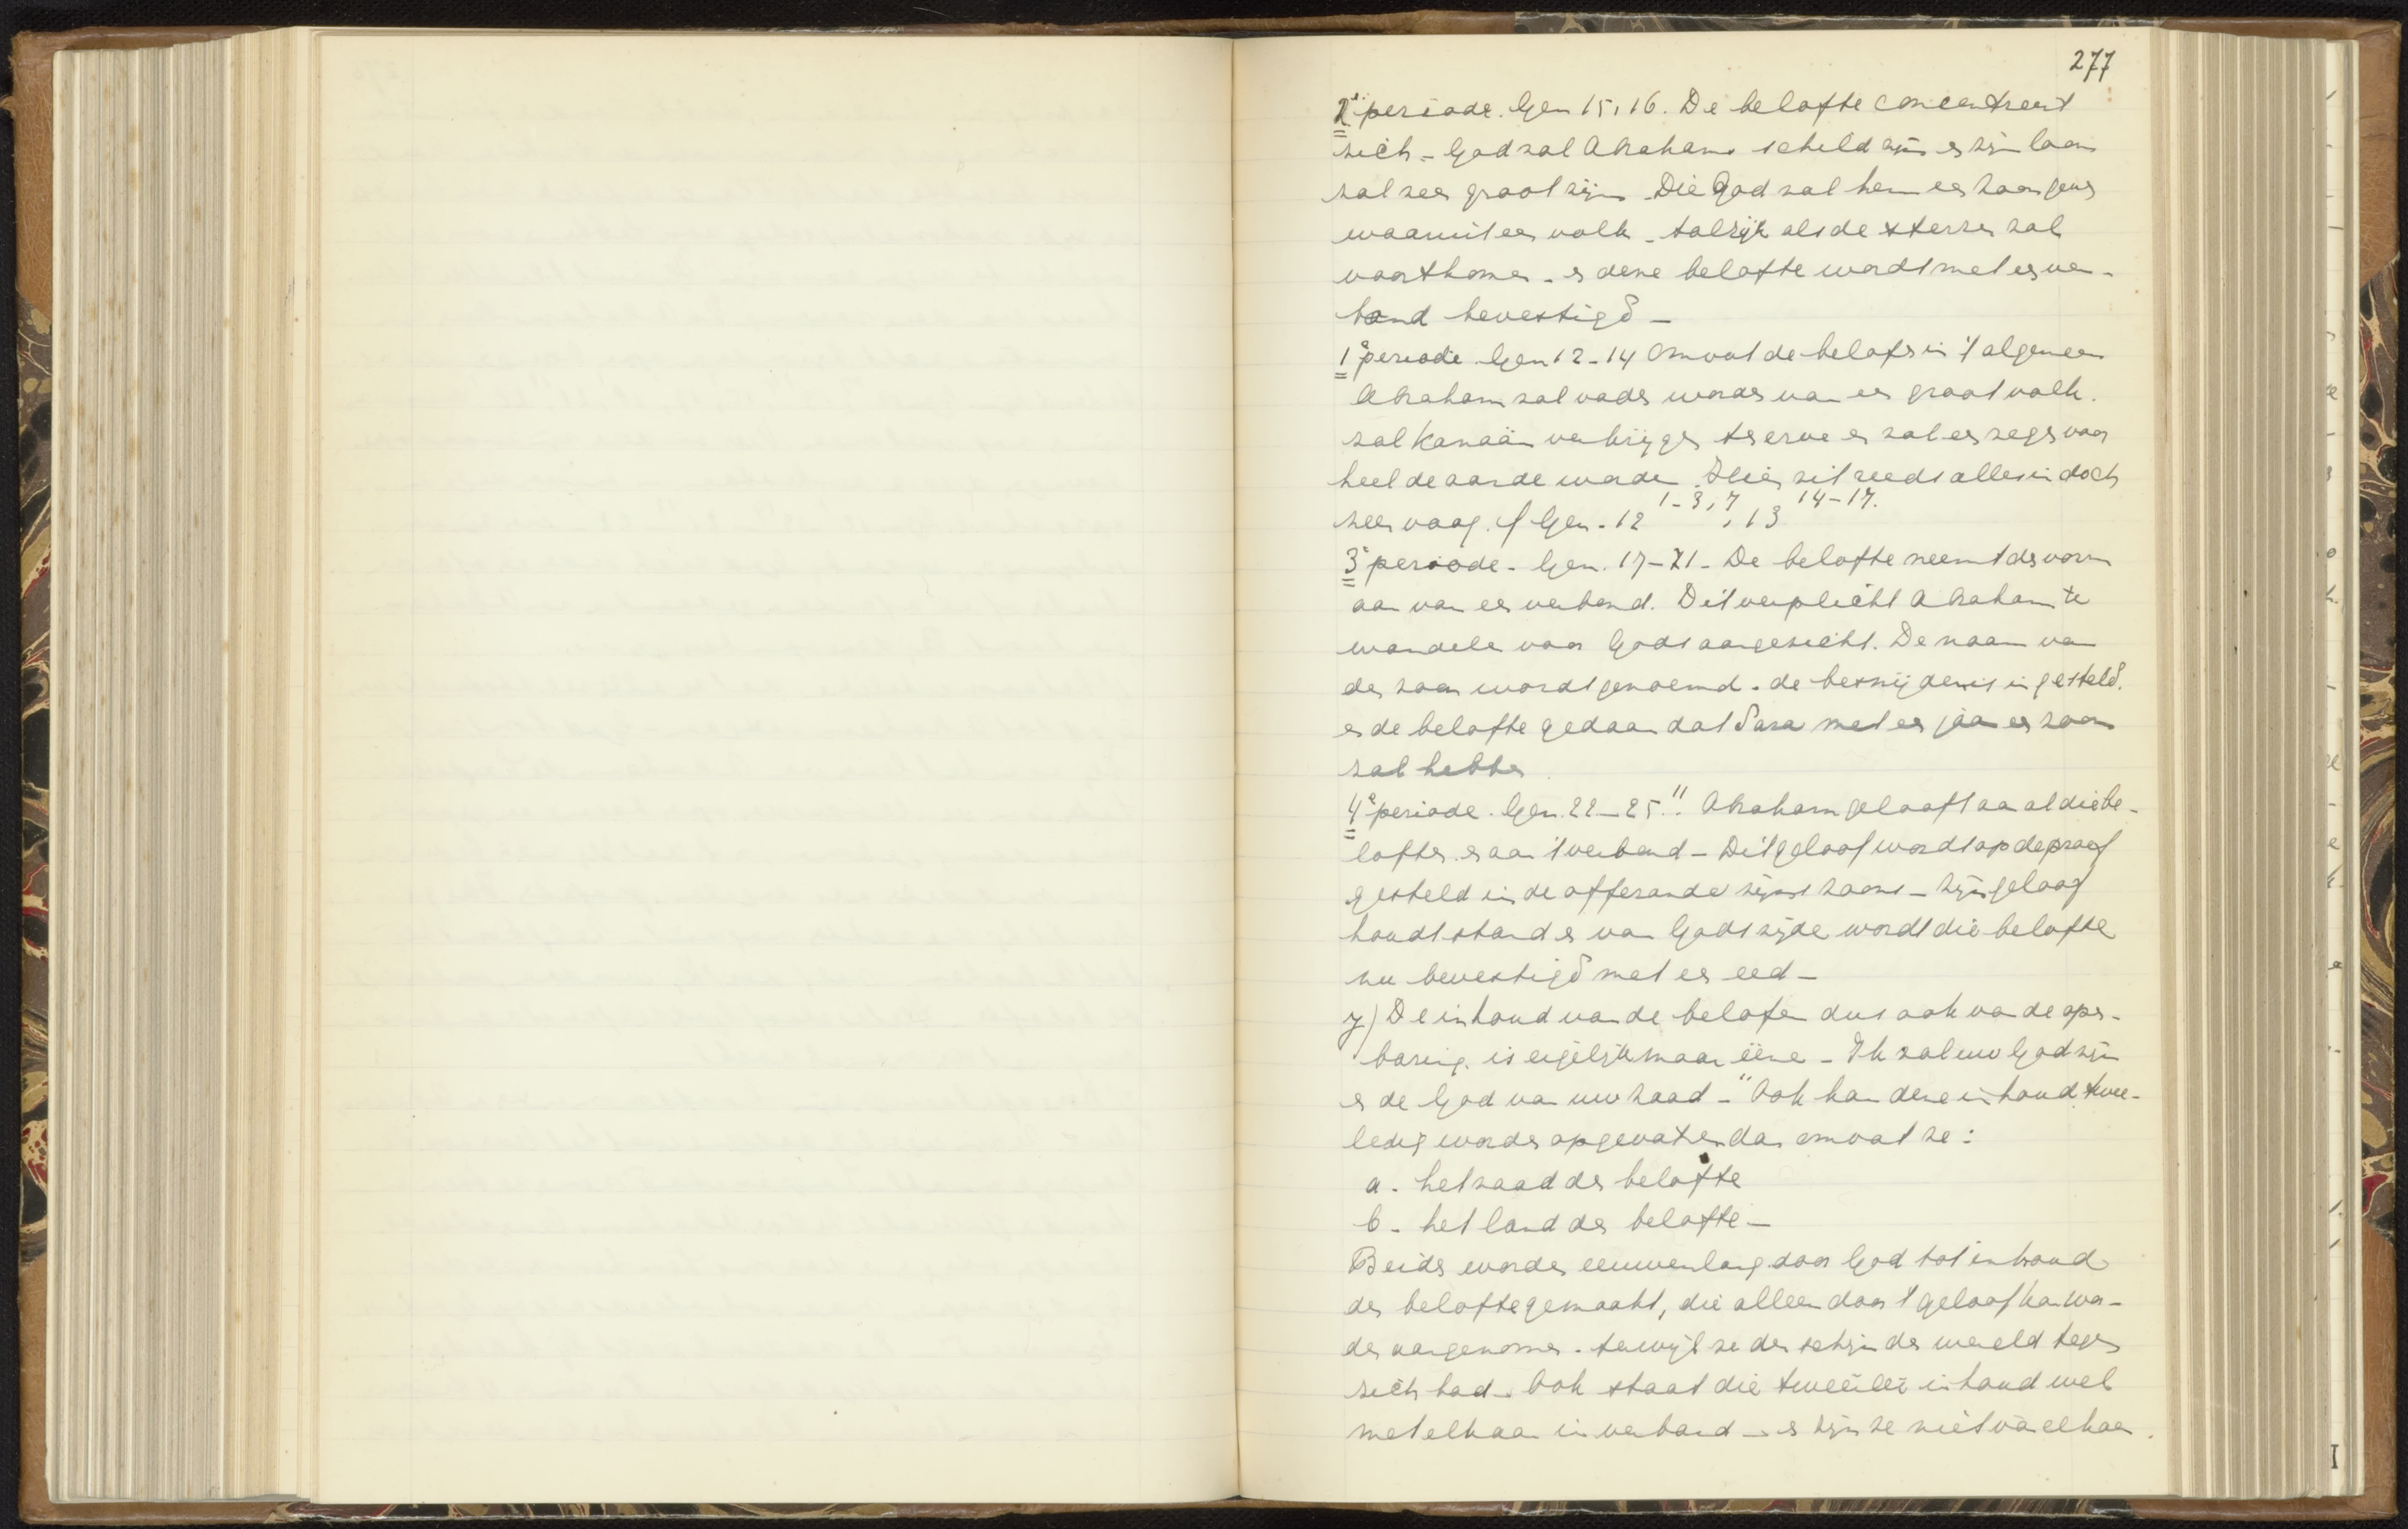 277
2e periode. Gen 15, 16. De belofte concentreert
zich - God zal Abrahams schild zijn en zijn loon
zal zeer groot zijn. Die God zal hem een zoon geven
waaruit een volk - talrijk als de sterren zal
voortkomen - en deze belofte wordt met een ver-
bond bevestigd -
1e periode Gen 12-14 omvat de belofte in 't algemeen
Abraham zal vader worden van een groot volk.
zal Kanaän verkrijgen ter erve en zal een zegen voor
heel de aarde worden. Hier zit reeds alles in doch
zeer vaag. cf Gen. 12 1-3, 7, 13 14-17.
3e periode - Gen. 17-21 - De belofte neemt den vorm
aan van een verbond. Dit verplicht Abraham te
wandelen voor Gods aangezicht. De naam van
den zoon wordt genoemd. de besnijdenis ingesteld.
en de belofte gedaan dat Sara met een jaar een zoon
zal hebben
4e periode. Gen. 22-25 11. Abraham gelooft aan al die be-
loften en aan 't verbond - Dit geloof wordt op de proef
gesteld in de offerande zijns zoons - zijn geloof
houdt stand en van Gods zijde wordt die belofte
nu bevestigd met een eed -
γ) De inhoud van de belofte dus ook van de open-
baring. is eigelijk maar ééne - Ik zal uw God zijn
en de God van uw zaad -" Ook kan deze inhoud twee-
ledig worden opgevat en dan omvat ze:
a. het zaad der belofte
b. het land der belofte -
Beide worden eeuwenlang door God tot inhoud
der belofte gemaakt, die alleen door 't geloof kan wor-
den aangenomen. terwijl ze den schijn der wereld tegen
zich had. Ook staat die tweeërlei inhoud wel
met elkaar in verband - en zijn ze niet van elkaar